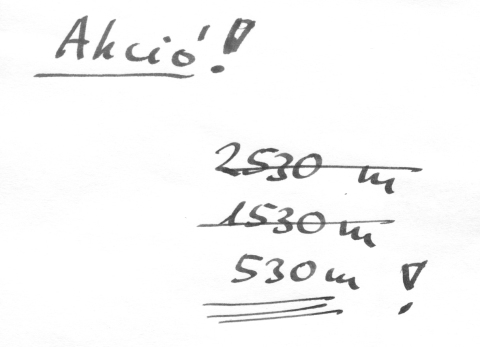 Akció!
2530 m
1530 m
530 m!